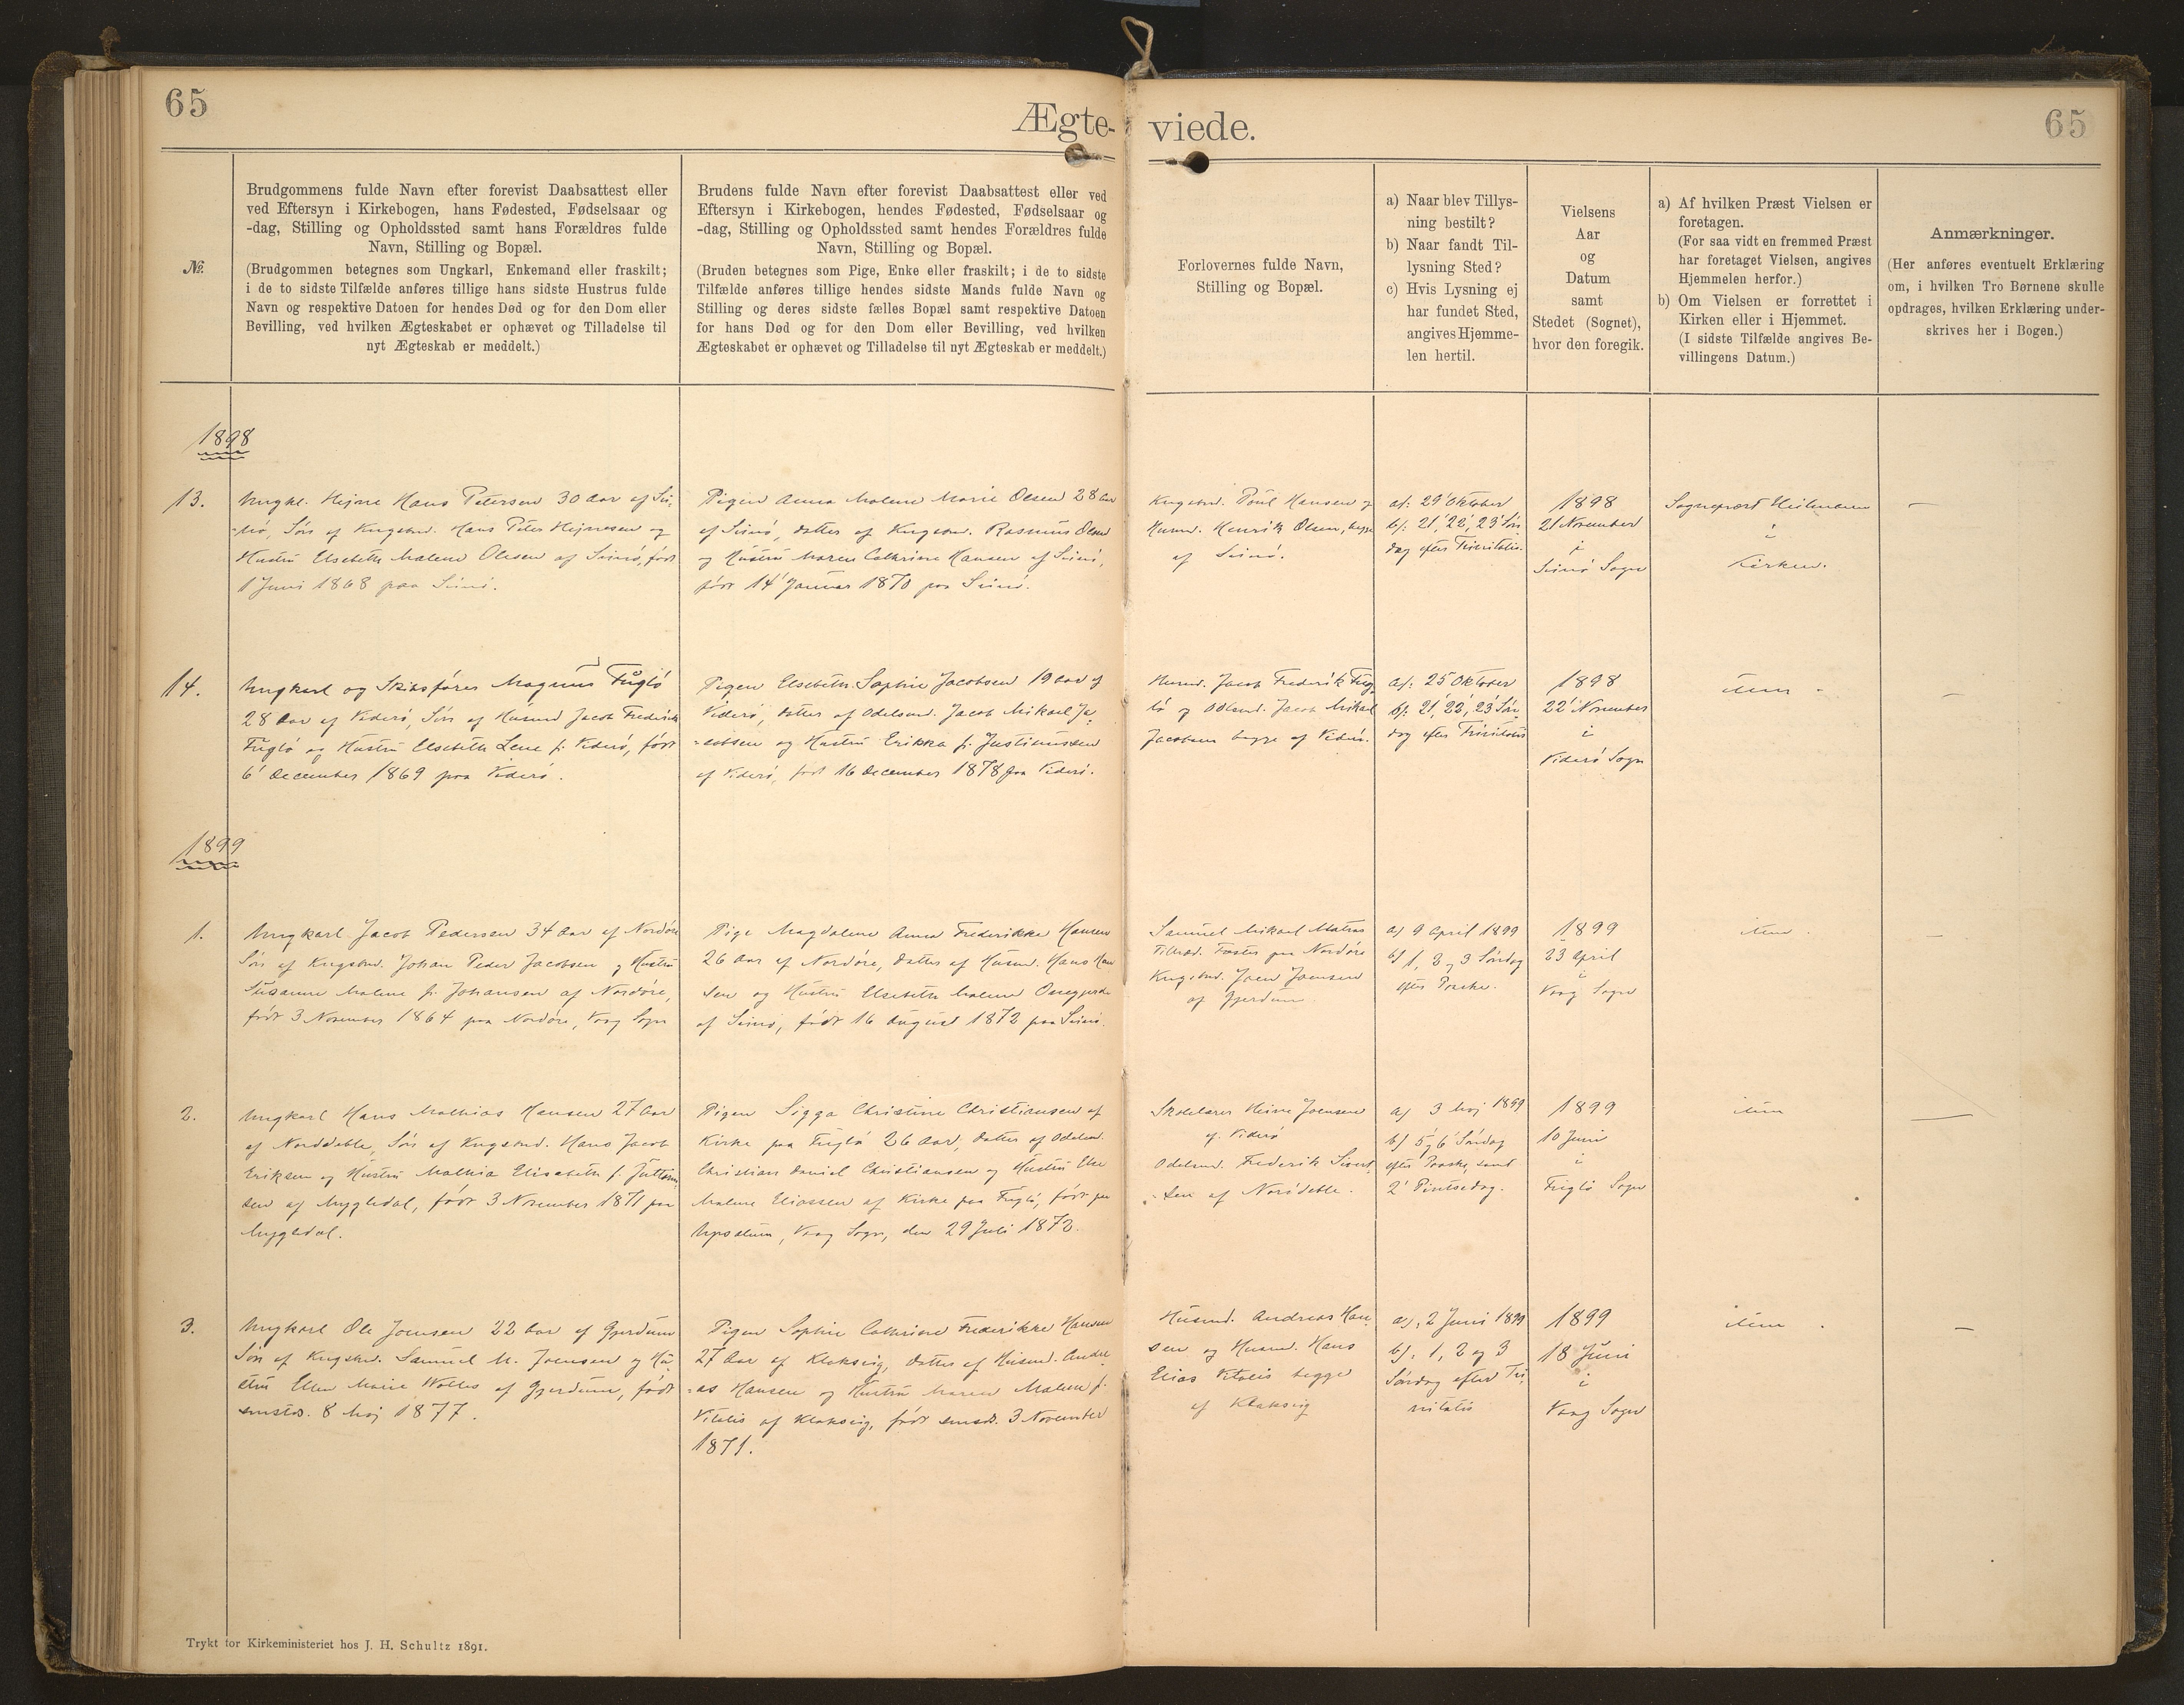 65
Ægte-
viede.
65
№.
Brudgommens fulde Navn efter forevist Daabsattest eller
ved Eftersyn i Kirkebogen, hans Fødested, Fødselsaar og
-dag, Stilling og Opholdssted samt hans Forældres fulde
Navn, Stilling og Bopæl.
(Brudgommen betegnes som Ungkarl, Enkemand eller fraskilt;
i de to sidste Tilfælde anføres tillige hans sidste Hustrus fulde
Navn og respektive Datoen for hendes Død og for den Dom eller
Bevilling, ved hvilken Ægteskabet er ophævet og Tilladelse til
nyt Ægteskab er meddelt.)
Brudens fulde Navn efter forevist Daabsattest eller ved
Eftersyn i Kirkebogen, hendes Fødested, Fødselsaar og
-dag, Stilling og Opholdssted samt hendes Forældres fulde
Navn, Stilling og Bopæl.
(Bruden betegnes som Pige, Enke eller fraskilt; i de to sidste
Tilfælde anføres tillige hendes sidste Mands fulde Navn og
Stilling og deres sidste fælles Bopæl samt respektive Datoen
for hans Død og for den Dom eller Bevilling, ved hvilken
Ægteskabet er ophævet og Tilladelse til nyt Ægteskab er meddelt.)
Forlovernes fulde Navn,
Stilling og Bopæl.
a) Naar blev Tillys-
ning bestilt?
b) Naar fandt Til-
lysning Sted?
c) Hvis Lysning ej
har fundet Sted,
angives Hjemme-
len hertil.
Vielsens
Aar
og
Datum
samt
Stedet (Sognet),
hvor den foregik.
a) Af hvilken Præst Vielsen er
foretagen.
(For saa vidt en fremmed Præst
har foretaget Vielsen, angives
Hjemmelen herfor.)
b) Om Vielsen er forrettet i
Kirken eller i Hjemmet.
(I sidste Tilfælde angives Be-
villingens Datum.)
Anmærkninger.
(Her anføres eventuelt Erklæring
om, i hvilken Tro Børnene skulle
opdrages, hvilken Erklæring under-
skrives her i Bogen.)
1898
13.
Ungk. Hejne Hans Petersen 30 Aar af Svi-
-nø, Søn af Kngsbd. Hans Peter Hejnesen og
Hustru Elsebeth Malene Olesen af Svinø, født
1 Juni 1868 paa Svinø.
Pigen Anna Malene Marie Olsen 28 Aar
af Svinø, Datter af Kngsbd. Rasmus Olsen
og Hustru Maren Cathrine Hansen af Svinø,
født 14' Januar 1870 paa Svinø.
Kngsbd. Poul Hansen og
Husmd. Henrik Olsen, begge
af Svinø.
a/: 29' Oktober
b/: 21', 22', 23' Søn-
dag efter Trinitatis.
1898
21 November
i
Svinø Sogn
Sognepræst Heilmann
i
Kirken.
—
14.
Ungkarl og Skibsfører Magnus Fuglø
28 Aar af Viderø, Søn af Husmd Jacob Frederik
Fuglø og Hustru Elsebeth Lene f. Viderø, født
6' December 1869 paa Viderø.
Pigen Elsebeth Sophie Jacobsen 19 Aar af
Viderø, Datter af Odelsmd. Jacob Mikael Ja-
-cobsen og Hustru Erikka f. Justinussen
af Viderø, født 16 December 1878 paa Viderø.
Husmd. Jacob Frederik Fug-
lø og Odelsmd. Jacob Mikael
Jacobsen begge af Viderø.
a/: 25 Oktober
b/: 21', 22', 23' Søn-
dag efter Trinitatis
1898
22' November
i
Viderø Sogn
item
—
1899
1.
Ungkarl Jacob Pedersen 34 Aar af Nordøre
Søn af Kngsbd. Johan Peder Jacobsen og Hustru
Susanne Malene f. Johansen af Nordøre,
født 3 November 1864 paa Nordøre, Vaag Sogn
Pige Magdalene Anna Frederikke Hansen
26 Aar af Nordøre, Datter af Husmd. Hans Han
sen og Hustru Elsebeth Malene
af Svinø, født 16 August 1872 paa Svinø.
Samuel Mikael Matras
paa Nordøre
Kngsbd. Joen Joensen
af Gjerdum.
a) 9 April 1899
b) 1, 2 og 3 Søndag
efter Paaske.
1899
23 April
i
Vaag Sogn
item.
—
2.
Ungkarl Hans Mathias Hansen 27 Aar
af Norddeble, Søn af Kngsbd. Hans Jacob
Eriksen og Hustru Mathia Elisabeth f.
sen af Mygledal, født 3 November 1871 paa
Mygledal.
Pigen Sigga Christine Christiansen af
Kirke paa Fuglø 26 Aar, Datter af Odelsmd.
Christian David Christiansen og Hustru Else
Malene Eliassen af Kirke paa Fuglø, født paa
Upsalum, Vaag Sogn, den 29 Juli 1872.
Skolelærer Heine Joensen
af Viderø
Odelsmd. Frederik Sivert-
-sen af Norddeble.
a) 3 Maj 1899
b) 5' og 6' Søndag
efter Paaske, samt
2' Pintsedag.
1899
10 Juni
i
Fuglø Sogn
item
—
3.
Ungkarl Ole Joensen 22 Aar af Gjerdum
Søn af Kngsbd. Samuel M. Joensen og Hu-
stru Ellen Marie Wolles af Gjerdum, født
smstds. 8 Maj 1877.
Pigen Sophie Cathrine Frederikke Hansen
27 Aar af Klaksvig, Datter af Husmd. Andre-
-as Hansen og Hustru Maren Malene f.
Vitalis af Klaksvig, født smsds. 3 November
1871.
Husmd. Andreas Han-
sen og Husmd. Hans
Elias Vitalis begge
af Klaksvig
a/. 2 Juni 1899
b/. 1, 2 og 3
Søndag efter Tri-
nitatis
1899
18 Juni
i
Vaag Sogn
item.
—
Trykt for Kirkeministeriet hos J. H. Schultz 1891.